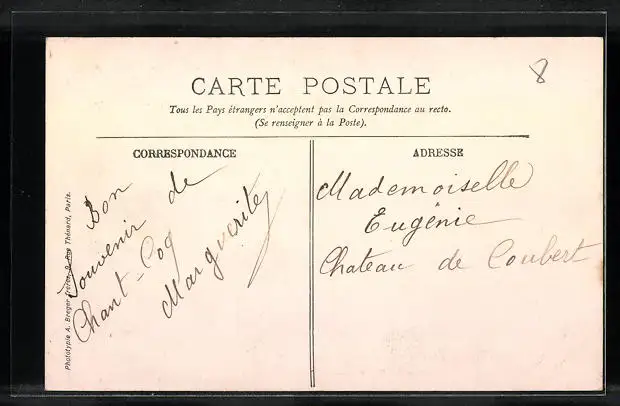 8
CARTE POSTALE
Tous les Pays étrangers n'acceptent pas la Correspondance au recto.
(Se renseigner à la Poste).
CORRESPONDANCE
Bon
Souvenir de
Chant-Coq
Marguerite
ADRESSE
Mademoiselle
Eugénie
Chateau de Coubert
Phototypie A. Breger frères, 9, Rue Thénard, Paris.